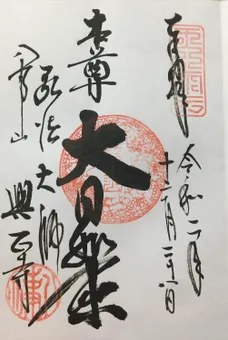 奉拝
令和一年
十二月二十一日
本尊
大日如来
弘法大師
八事山
興正寺